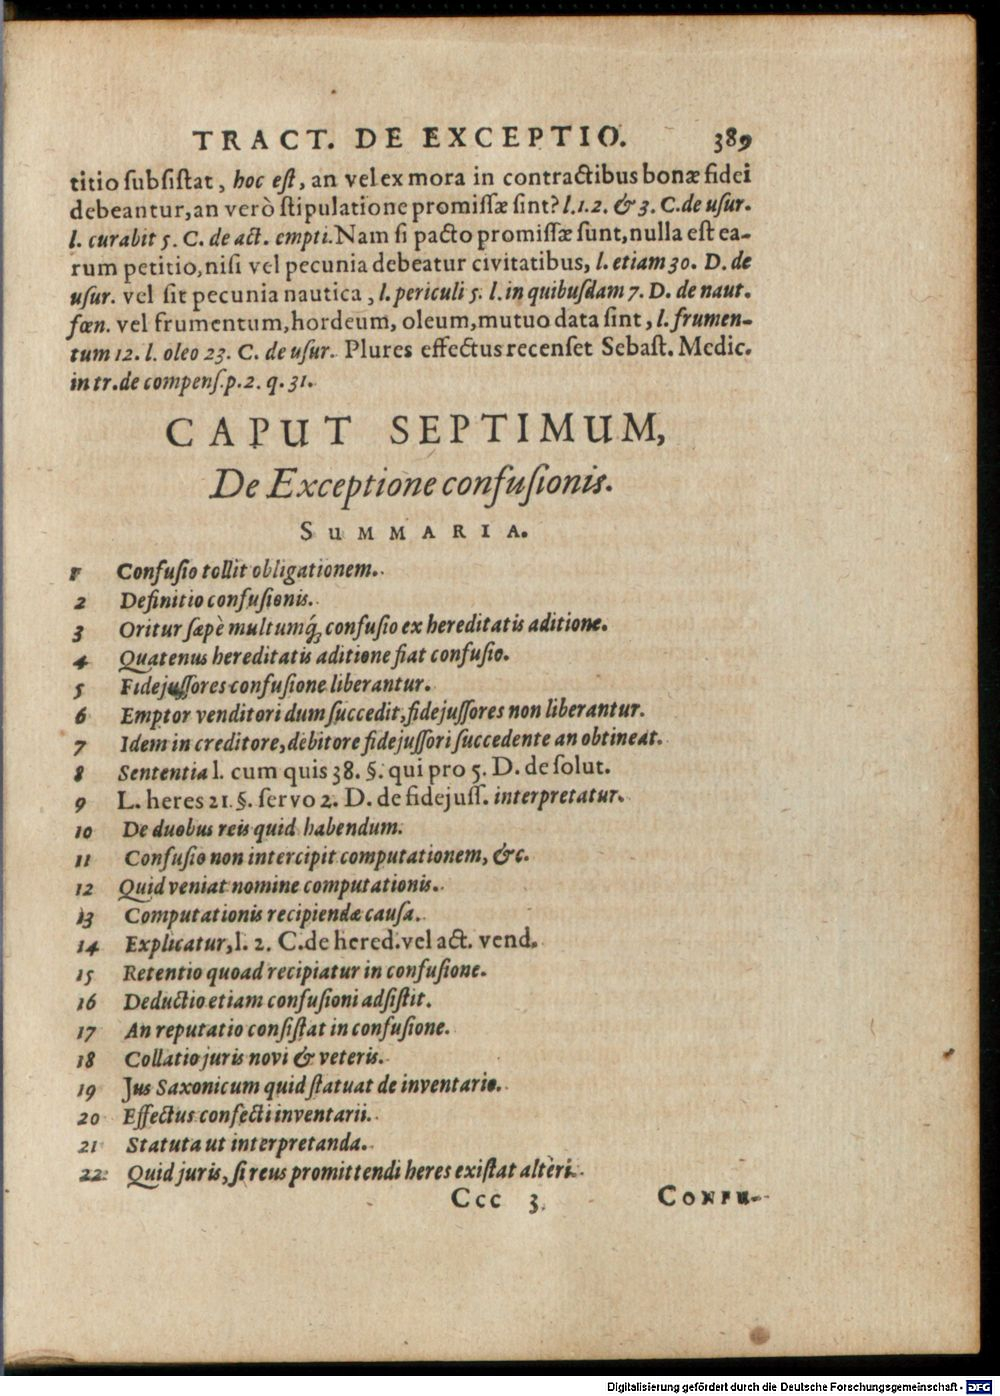 TRACT. DE EXCEPTIO. 389
titio subsistat, hoc est, an vel ex mora in contractibus bonæ fidei
debeantur, an verò stipulatione promissæ sint? l. 1. 2. & 3. C. de usur.
l. curabit 5. C. de act. empti. Nam si pacto promissæ sunt, nulla est ea-
rum petitio, nisi vel pecunia debeatur civitatibus, l. etiam 30. D. de
usur. vel sit pecunia nautica, l. periculi 5. l. in quibusdam 7. D. de naut.
fœn. vel frumentum, hordeum, oleum, mutuo data sint, l. frumen-
tum 12. l. oleo 23. C. de usur. Plures effectus recenset Sebast. Medic.
in tr. de compens. p. 2. q. 31.
CAPUT SEPTIMUM,
De Exceptione confusionis.
SUMMARIA.
1 Confusio tollit obligationem.
2 Definitio confusionis.
3 Oritur sæpè multumq́; confusio ex hereditatis aditione.
4 Quatenus hereditatis aditione fiat confusio.
5 Fidejussores confusione liberantur.
6 Emptor venditori dum succedit, fidejussores non liberantur.
7 Idem in creditore, debitore fidejussori succedente an obtineat.
8 Sententia l. cum quis 38. §. qui pro 5. D. de solut.
9 L. heres 21. §. servo 2. D. de fidejuss. interpretatur.
10 De duobus reis quid habendum.
11 Confusio non intercipit computationem, &c.
12 Quid veniat nomine computationis.
13 Computationis recipiendæ causa.
14 Explicatur, l. 2. C. de hered. vel act. vend.
15 Retentio quoad recipiatur in confusione.
16 Deductio etiam confusioni adsistit.
17 An reputatio consistat in confusione.
18 Collatio juris novi & veteris.
19 Jus Saxonicum quid statuat de inventario.
20 Effectus confecti inventarii.
21 Statuta ut interpretanda.
22 Quid juris, si reus promittendi heres existat alteri.
Ccc 3 CONFU-
Digitalisierung gefördert durch die Deutsche Forschungsgemeinschaft - DFG